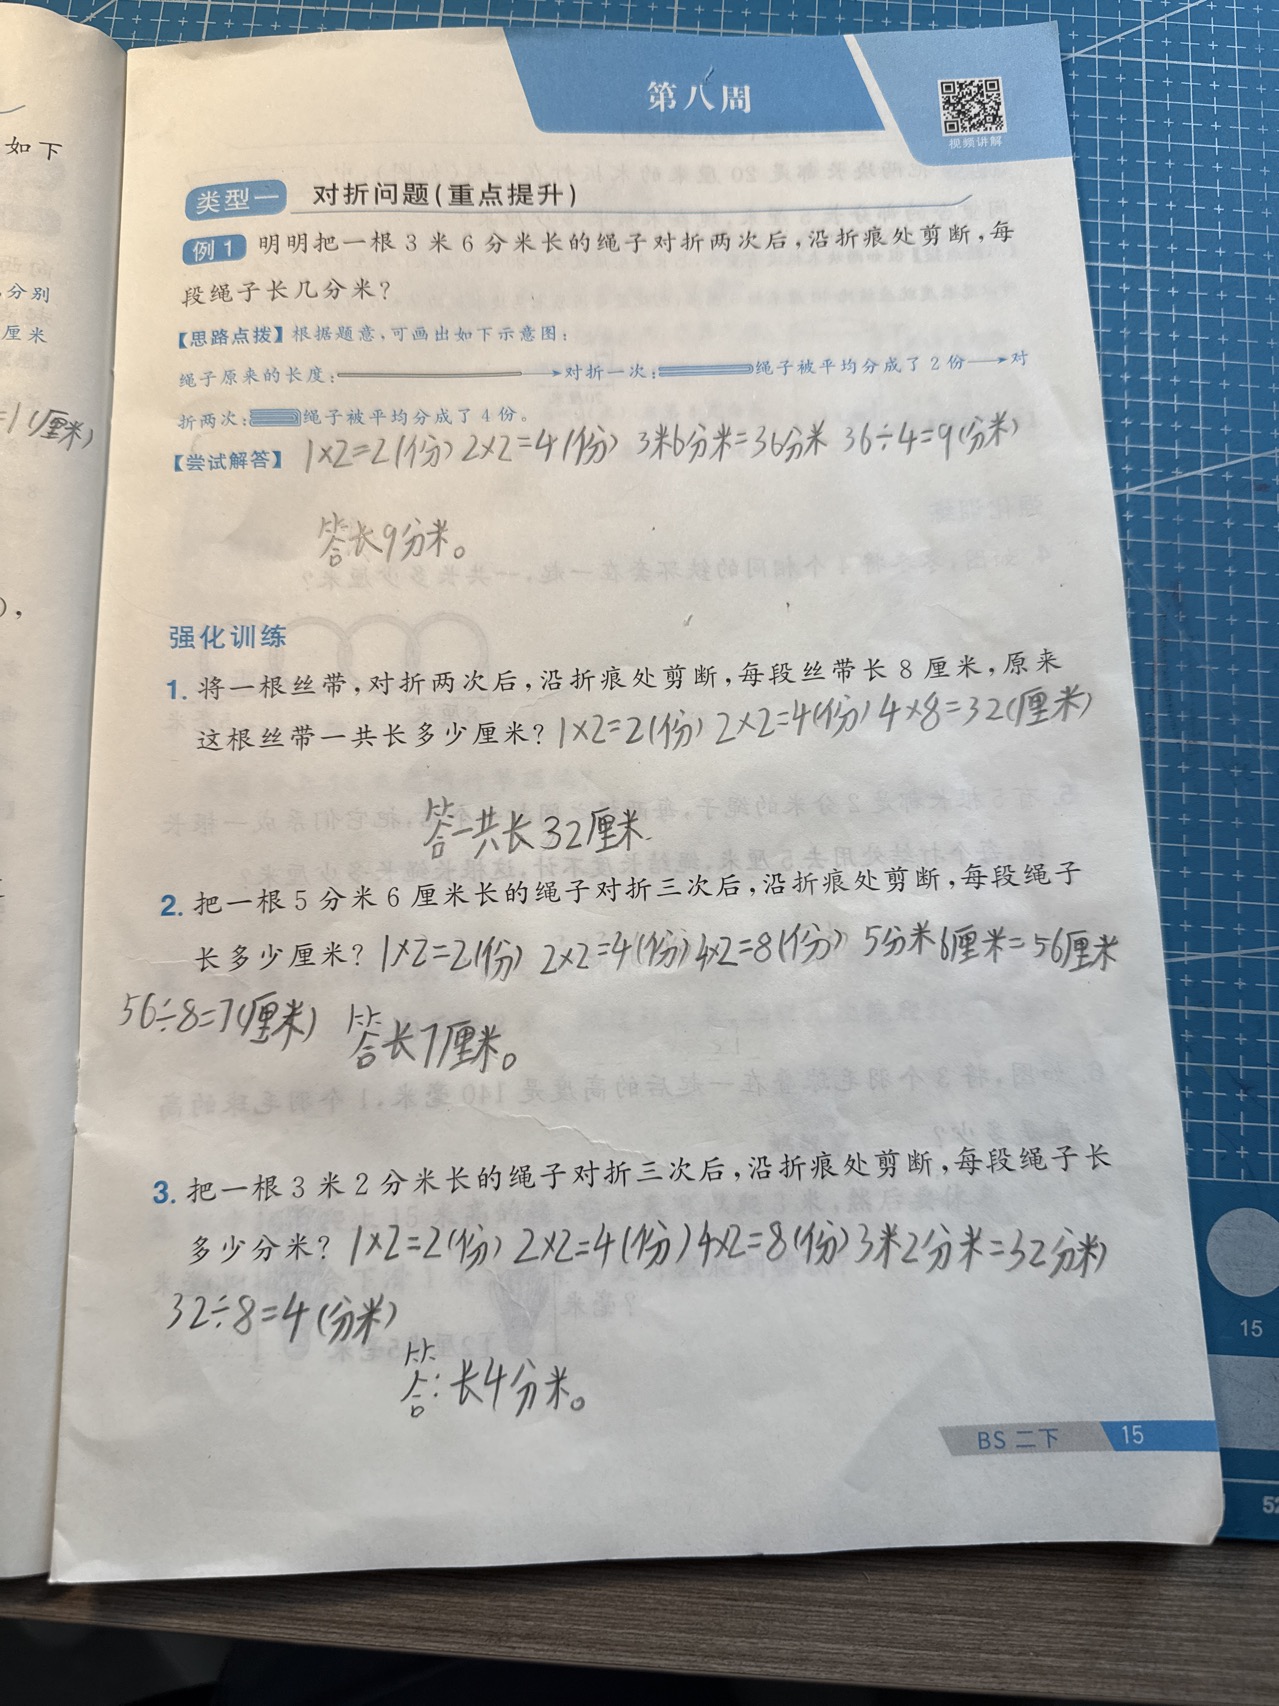 如下
分别
厘米
=1(厘米)
),
第八周
视频讲解
类型一 对折问题(重点提升)
例1 明明把一根3米6分米长的绳子对折两次后,沿折痕处剪断,每
段绳子长几分米?
【思路点拨】根据题意,可画出如下示意图:
绳子原来的长度: 对折一次: 绳子被平均分成了2份 对
折两次: 绳子被平均分成了4份。
【尝试解答】 1×2=2(份) 2×2=4(份) 3米6分米=36分米 36÷4=9(分米)
答长9分米。
强化训练
1. 将一根丝带,对折两次后,沿折痕处剪断,每段丝带长8厘米,原来
这根丝带一共长多少厘米? 1×2=2(份) 2×2=4(份) 4×8=32(厘米)
答一共长32厘米.
2. 把一根5分米6厘米长的绳子对折三次后,沿折痕处剪断,每段绳子
长多少厘米? 1×2=2(份) 2×2=4(份) 4×2=8(份) 5分米6厘米=56厘米
56÷8=7(厘米) 答长7厘米。
3. 把一根3米2分米长的绳子对折三次后,沿折痕处剪断,每段绳子长
多少分米? 1×2=2(份) 2×2=4(份) 4×2=8(份) 3米2分米=32分米)
32÷8=4(分米)
答:长4分米。
BS 二下 15
15
52